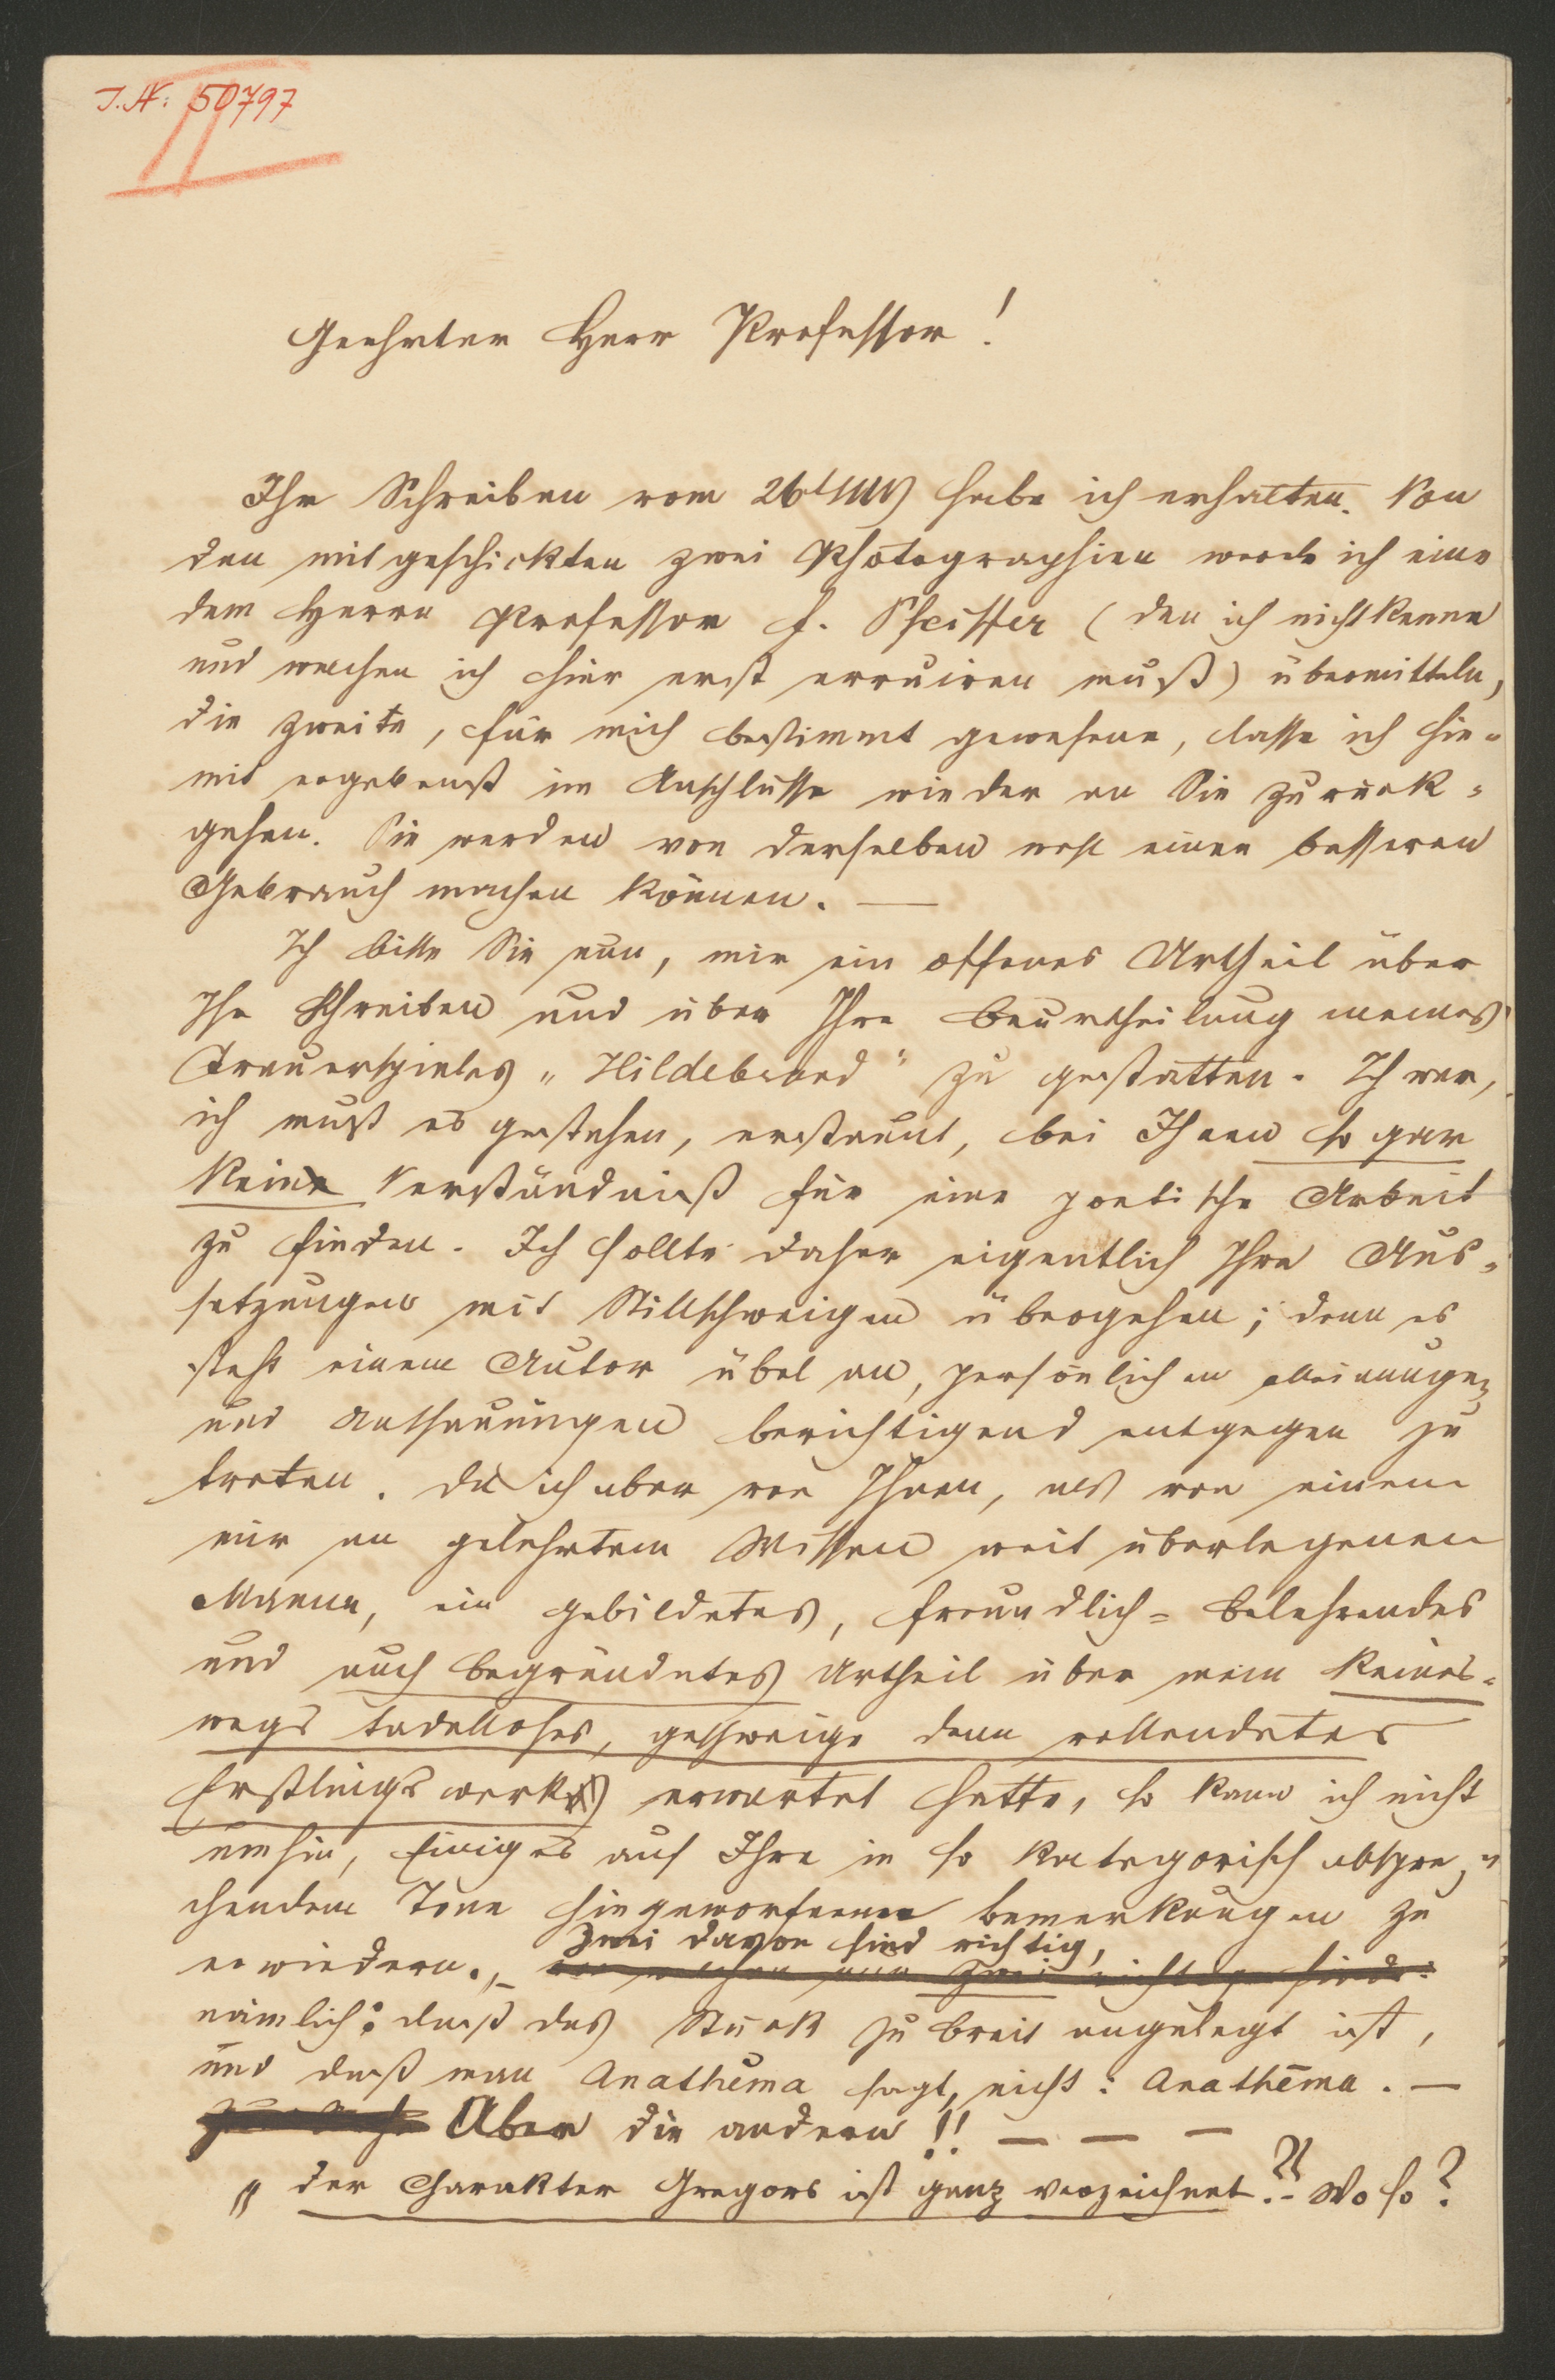 J.N: 50797
II
Geehrter Herr Professor!
Ihr Schreiben vom 26t habe ich erhalten. Von
den mitgeschickten zwei Photographien werde ich eine
dem Herrn Professor F. Pfeiffer (den ich nicht kenne
und welchen ich hier erst erruiren muß) übermitteln,
die zweite, für mich bestimmt gewesene, lasse ich hie-
mit ergebenst im Anschlusse wieder an Sie zurück-
gehen. Sie werden von derselben wohl einen besseren
Gebrauch machen können. —
Ich bitte Sie nun, mir ein offenes Urtheil über
Ihr Schreiben und über Ihre Beurtheilung meines
Trauerspieles „Hildebrand" zu gestatten. Ich war,
ich muß es gestehen, erstaunt, bei Ihnen so gar
kein Verständniß für eine poetische Arbeit
zu finden. Ich sollte daher eigentlich Ihre Aus-
setzungen mit Stillschweigen übergehen; denn es
steht einem Autor übel an, persönlichen Meinungen
und Anschauungen berichtigend entgegen zu
treten. Da ich aber von Ihnen, als von einem
mir an gelehrtem Wissen weit überlegenen
Manne, ein gebildetes, freundlich-belehrendes
und auch begründetes Urtheil über mein keines-
wegs tadelloses, geschweige denn vollendetes
Erstlingswerk erwartet hatte, so kann ich nicht
umhin, Einiges auf Ihre in so kategorisch abspre-
chendem Tone hingeworfenen Bemerkungen zu
zwei davon sind richtig,
erwiedern. – von welchen nur zwei richtig sind:
nämlich: daß das Stück zu breit angelegt ist,
und daß man Anathĕma sagt, nicht: Anathēma. —
Aber die andern!! — — —
„der Charakter Gregors ist ganz verzeichnet."?– Wo so?